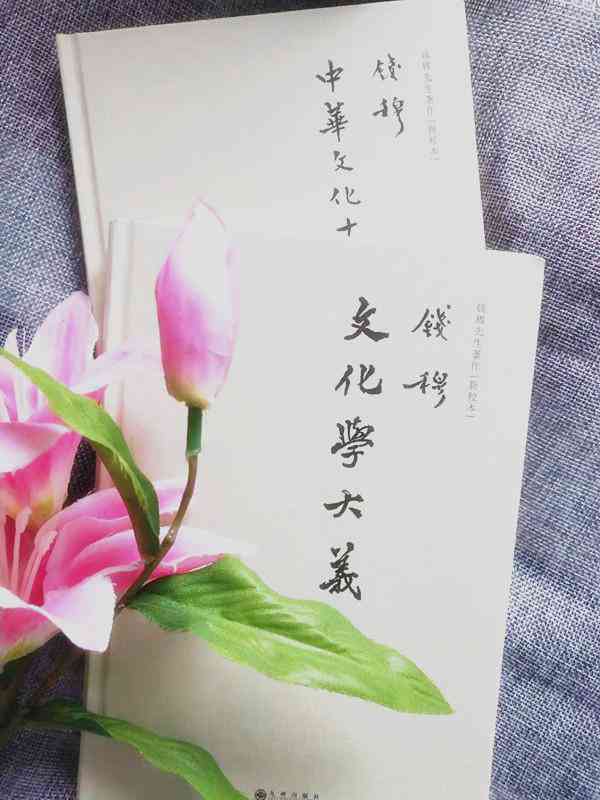 钱穆先生著作[新校本]
錢穆
中華文化十
钱穆先生著作[新校本]
錢穆
文化學大義
九州出版社